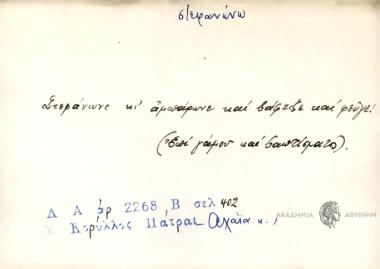 στεφανώνω
Στεφάνωνε κι' ἀμπάρωνε καὶ βάφτιζε καὶ φεῦγε!
(Ἐπὶ γάμου καὶ βαπτίσματος).
Λ Α ἀρ 2268 Β σελ 402
Κορύλλος Πάτραι (Ἀχαΐα κ.)
ΑΚΑΔΗΜΙΑ ΑΘΗΝΩΝ